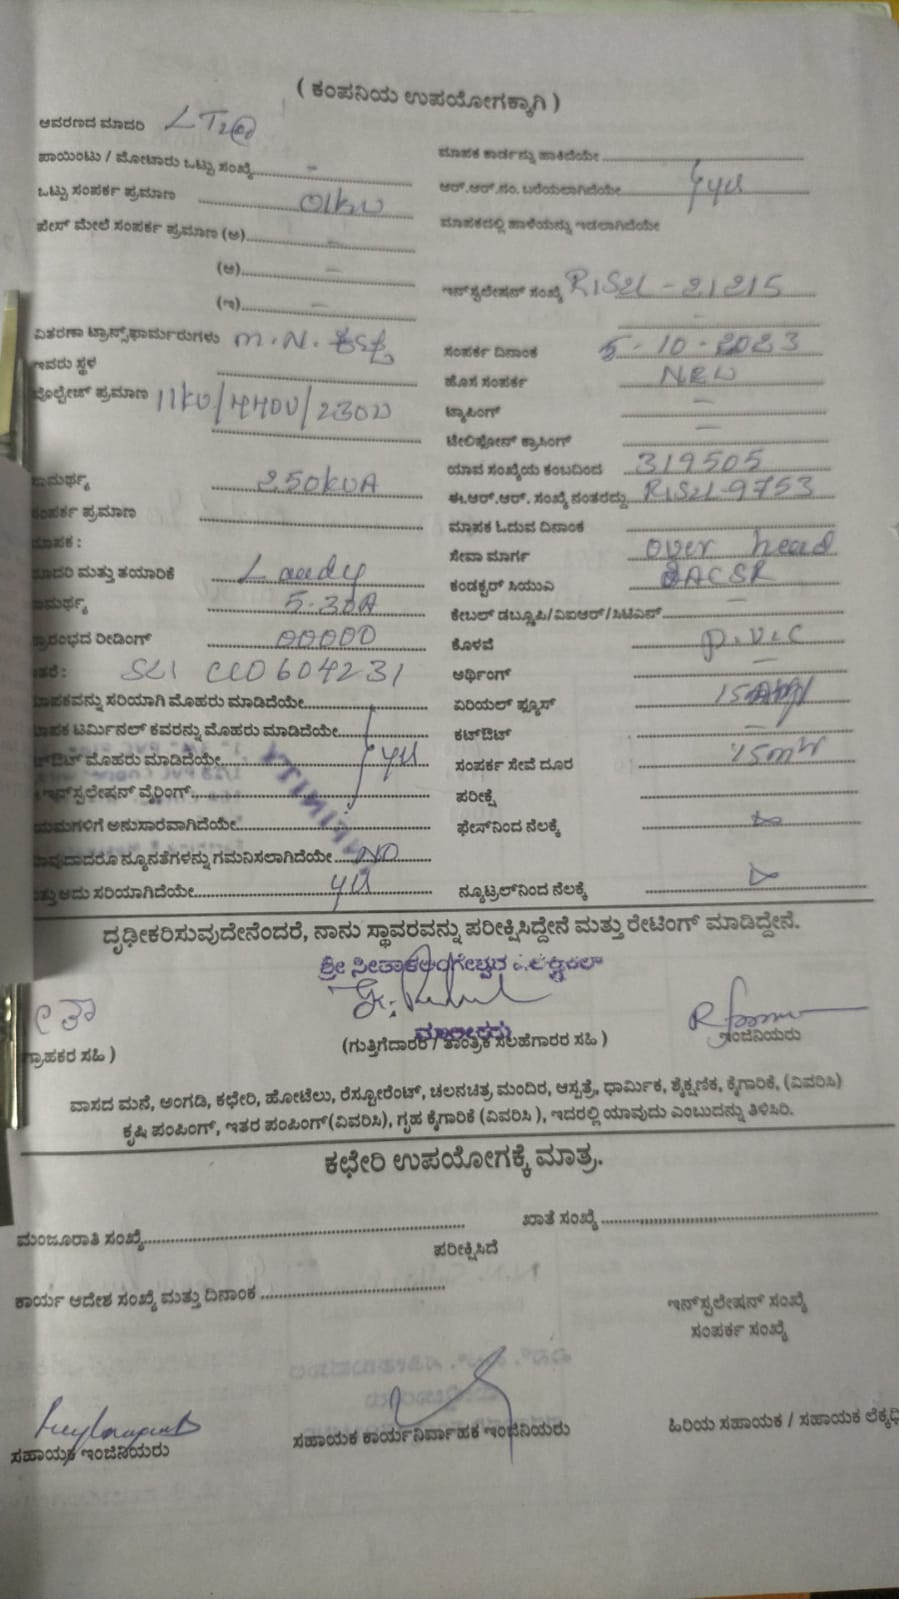 ( ಕಂಪನಿಯ ಉಪಯೋಗಕ್ಕಾಗಿ )
ಆವರಣದ ಮಾದರಿ LT2(a)
ಪಾಯಿಂಟು / ಮೋಟಾರು ಒಟ್ಟು ಸಂಖ್ಯೆ -
ಒಟ್ಟು ಸಂಪರ್ಕ ಪ್ರಮಾಣ 01kw
ಪೇಸ್ ಮೇಲೆ ಸಂಪರ್ಕ ಪ್ರಮಾಣ (ಅ) -
(ಆ) -
(ಇ) -
ವಿತರಣಾ ಟ್ರಾನ್ಸ್‌ಫಾರ್ಮರುಗಳು M.N.
ಇವರು ಸ್ಥಳ
ವೋಲ್ಟೇಜ್ ಪ್ರಮಾಣ 11kv/440v/230v
ಸಾಮರ್ಥ್ಯ 250kVA
ಸಂಪರ್ಕ ಪ್ರಮಾಣ
ಮಾಪಕ :
ಮಾದರಿ ಮತ್ತು ತಯಾರಿಕೆ
ಸಾಮರ್ಥ್ಯ 5-30A
ಪ್ರಾರಂಭದ ರೀಡಿಂಗ್ 00000
ಇತರೆ :
ಮಾಪಕವನ್ನು ಸರಿಯಾಗಿ ಮೊಹರು ಮಾಡಿದೆಯೇ
ಮಾಪಕ ಟರ್ಮಿನಲ್ ಕವರನ್ನು ಮೊಹರು ಮಾಡಿದೆಯೇ
ಕಟ್‌ಔಟ್ ಮೊಹರು ಮಾಡಿದೆಯೇ yes
ಇನ್‌ಸ್ಟಲೇಷನ್ ವೈರಿಂಗ್
ನಿಯಮಗಳಿಗೆ ಅನುಸಾರವಾಗಿದೆಯೇ
ಯಾವುದಾದರೂ ನ್ಯೂನತೆಗಳನ್ನು ಗಮನಿಸಲಾಗಿದೆಯೇ NO
ಮತ್ತು ಅದು ಸರಿಯಾಗಿದೆಯೇ yes
ಮಾಪಕ ಕಾರ್ಡನ್ನು ಹಾಕಿದೆಯೇ
ಆರ್.ಆರ್.ನಂ. ಬರೆಯಲಾಗಿದೆಯೇ yes
ಮಾಪಕದಲ್ಲಿ ಹಾಳೆಯನ್ನು ಇಡಲಾಗಿದೆಯೇ
ಇನ್‌ಸ್ಟಲೇಷನ್ ಸಂಖ್ಯೆ RISLL-21215
-
ಸಂಪರ್ಕ ದಿನಾಂಕ 5-10-2023
ಹೊಸ ಸಂಪರ್ಕ NEW
ಟ್ಯಾಪಿಂಗ್ -
ಟೇಲಿಫೋನ್ ಕ್ರಾಸಿಂಗ್ -
ಯಾವ ಸಂಖ್ಯೆಯ ಕಂಬದಿಂದ 319505
ಈ.ಆರ್.ಆರ್. ಸಂಖ್ಯೆ ನಂತರದ್ದು RISLL-9753
ಮಾಪಕ ಓದುವ ದಿನಾಂಕ
ಸೇವಾ ಮಾರ್ಗ over head
ಕಂಡಕ್ಟರ್ ಸಿಯುವಿ ACSR
ಕೇಬಲ್ ಡಬ್ಲ್ಯೂಪಿ/ವಿಐಆರ್/ಸಿಟಿಎಸ್ -
ಕೊಳವೆ P.V.C
ಅರ್ಥಿಂಗ್ -
ಏರಿಯಲ್ ಫ್ಯೂಸ್ 15Amp
ಕಟ್‌ಔಟ್ -
ಸಂಪರ್ಕ ಸೇವೆ ದೂರ 15mtr
ಪರೀಕ್ಷೆ
ಫೇಸ್‌ನಿಂದ ನೆಲಕ್ಕೆ
ನ್ಯೂಟ್ರಲ್‌ನಿಂದ ನೆಲಕ್ಕೆ
ದೃಢೀಕರಿಸುವುದೇನೆಂದರೆ, ನಾನು ಸ್ಥಾವರವನ್ನು ಪರೀಕ್ಷಿಸಿದ್ದೇನೆ ಮತ್ತು ರೇಟಿಂಗ್ ಮಾಡಿದ್ದೇನೆ.
ಮಾಲೀಕರು
ಗ್ರಾಹಕರ ಸಹಿ )
(ಗುತ್ತಿಗೆದಾರರ / ತಾಂತ್ರಿಕ ಸಲಹೆಗಾರರ ಸಹಿ )
ಇಂಜಿನಿಯರು
ವಾಸದ ಮನೆ, ಅಂಗಡಿ, ಕಛೇರಿ, ಹೋಟೆಲು, ರೆಸ್ಟೋರೆಂಟ್, ಚಲನಚಿತ್ರ, ಮಂದಿರ, ಆಸ್ಪತ್ರೆ, ಧಾರ್ಮಿಕ, ಶೈಕ್ಷಣಿಕ, ಕೈಗಾರಿಕೆ, (ವಿವರಿಸಿ)
ಕೃಷಿ ಪಂಪಿಂಗ್, ಇತರ ಪಂಪಿಂಗ್(ವಿವರಿಸಿ), ಗೃಹ ಕೈಗಾರಿಕೆ (ವಿವರಿಸಿ ), ಇದರಲ್ಲಿ ಯಾವುದು ಎಂಬುದನ್ನು ತಿಳಿಸಿರಿ.
ಕಛೇರಿ ಉಪಯೋಗಕ್ಕೆ ಮಾತ್ರ.
ಮಂಜೂರಾತಿ ಸಂಖ್ಯೆ
ಖಾತೆ ಸಂಖ್ಯೆ
ಪರೀಕ್ಷಿಸಿದೆ
ಕಾರ್ಯ ಆದೇಶ ಸಂಖ್ಯೆ ಮತ್ತು ದಿನಾಂಕ
ಇನ್‌ಸ್ಟಲೇಷನ್ ಸಂಖ್ಯೆ
ಸಂಪರ್ಕ ಸಂಖ್ಯೆ
ಸಹಾಯಕ ಇಂಜಿನಿಯರು
ಸಹಾಯಕ ಕಾರ್ಯನಿರ್ವಾಹಕ ಇಂಜಿನಿಯರು
ಹಿರಿಯ ಸಹಾಯಕ / ಸಹಾಯಕ